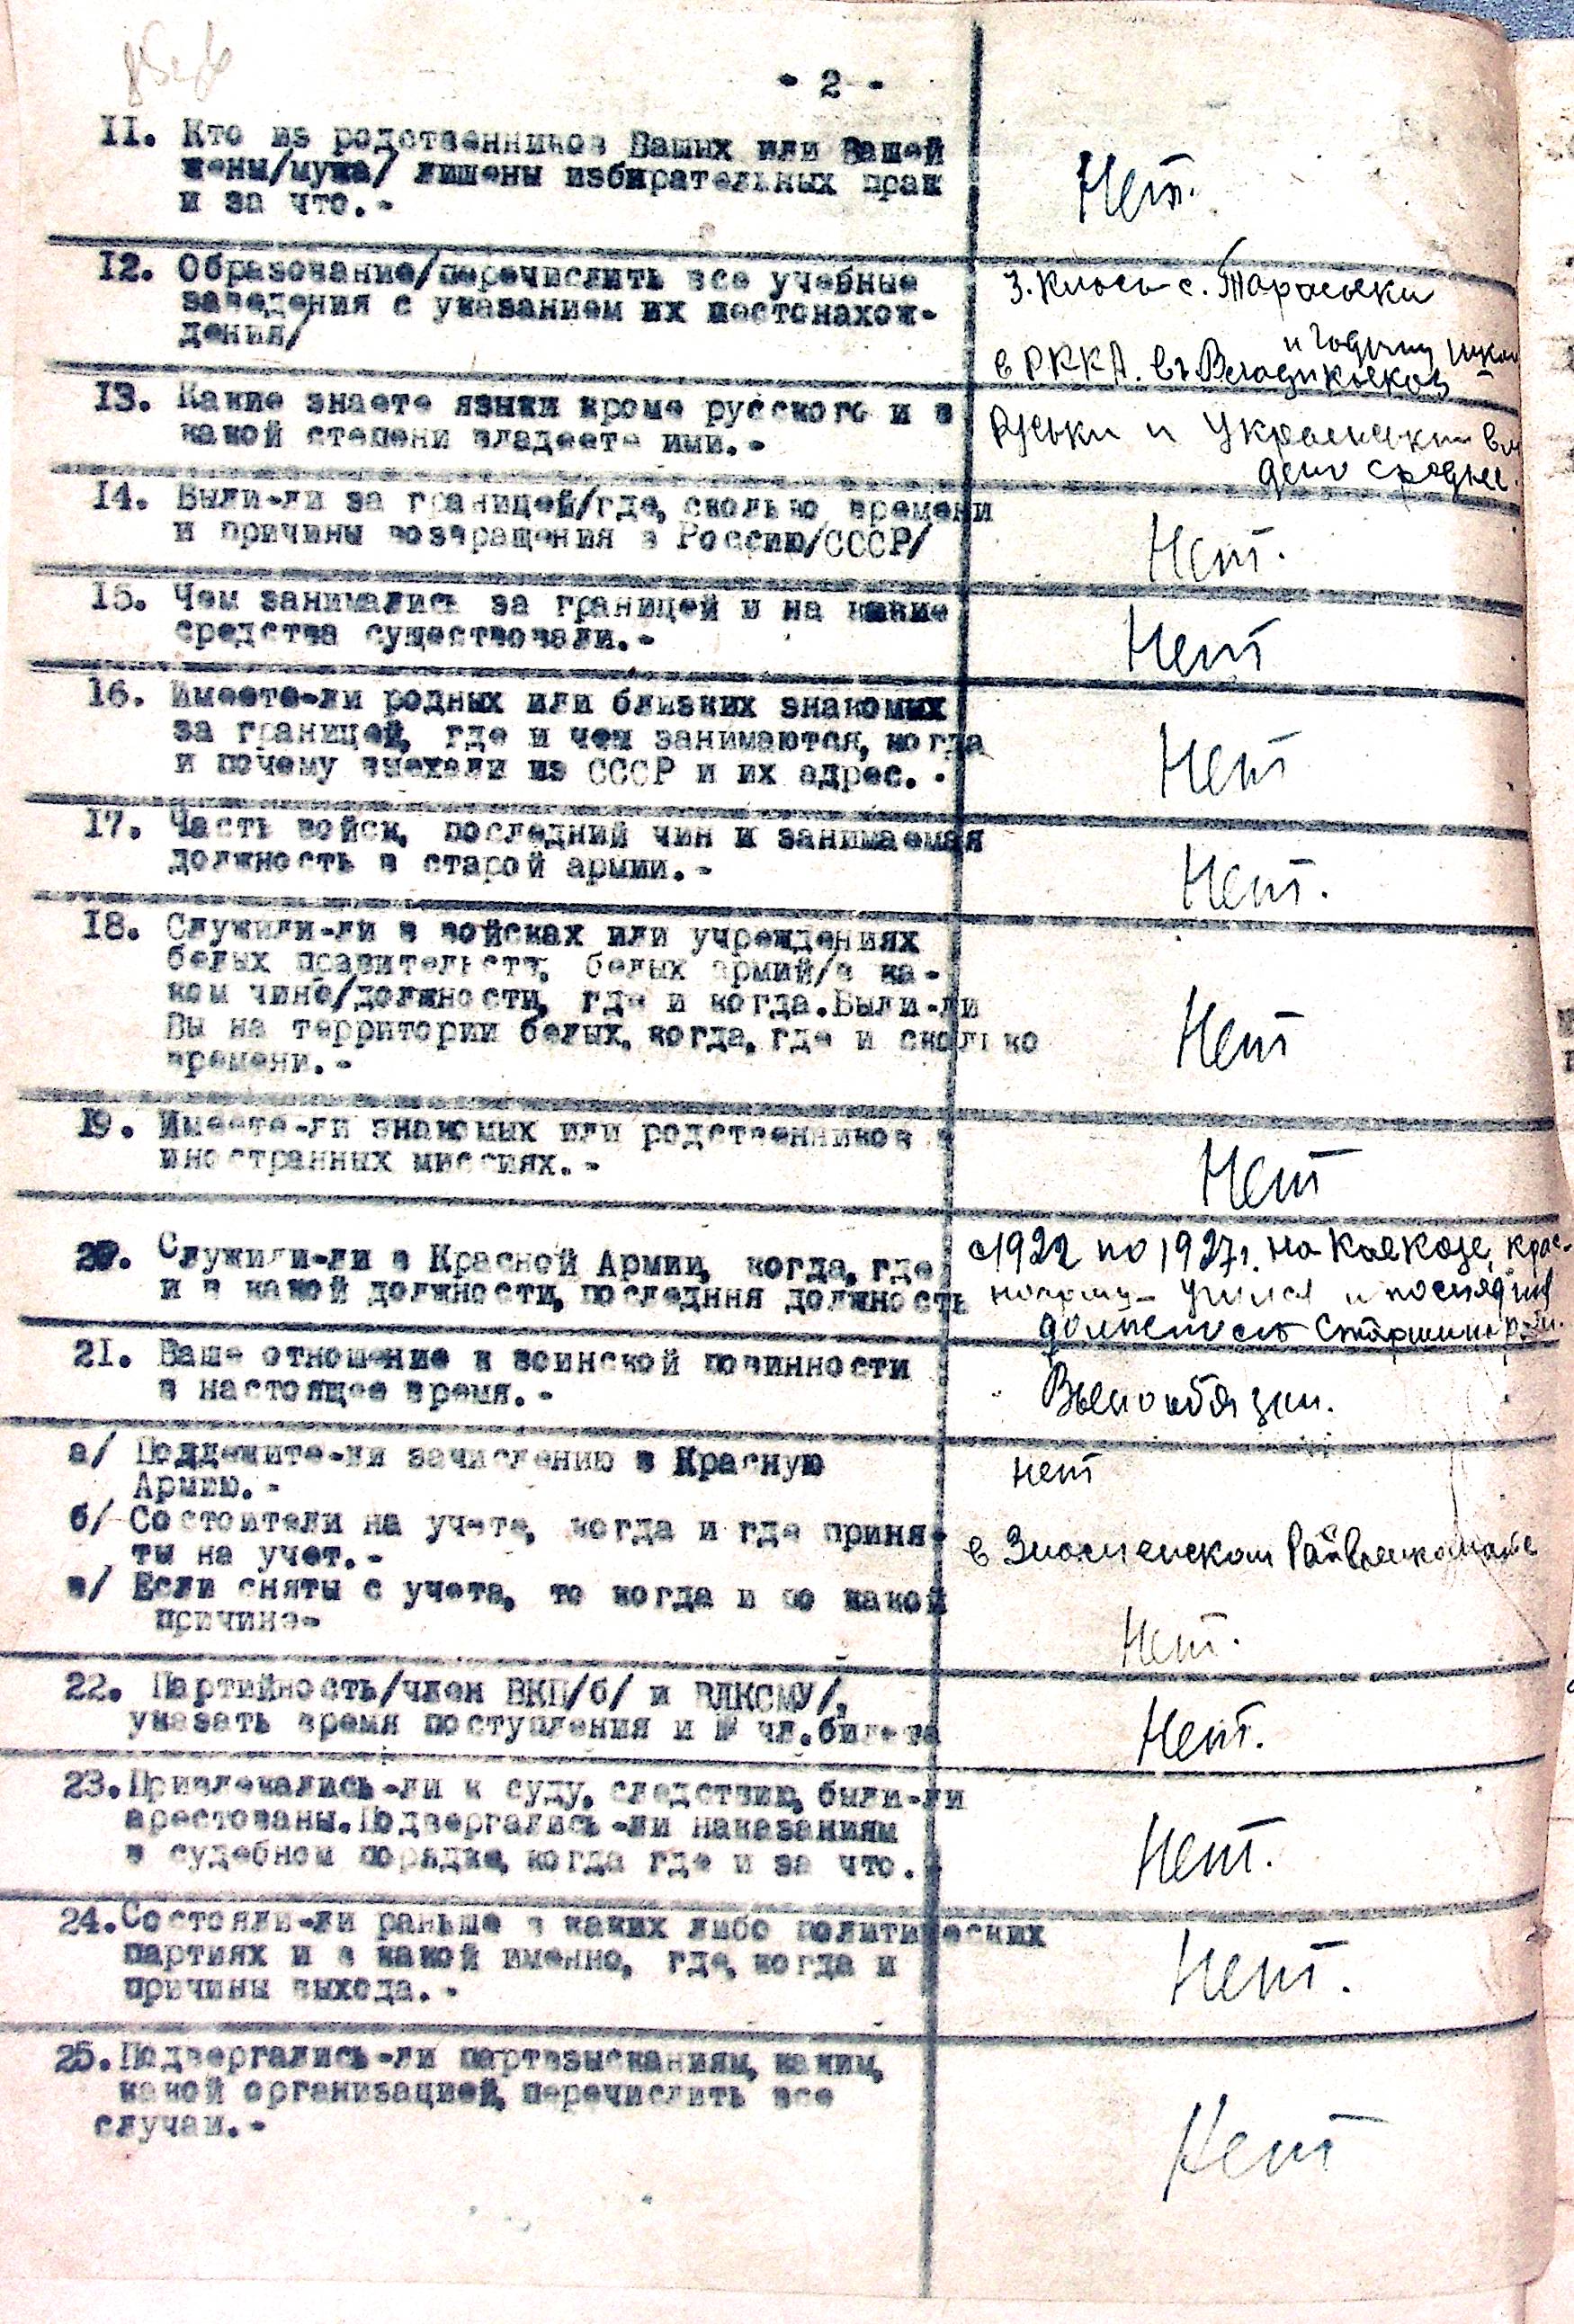 - 2 -
II. Кто из родственников Ваших или Вашей
жены/мужа/ лишены избирательных прав
и за что.-
Нет.
I2. Образование/перечислить все учебные
заведения с указанием их местонахож-
дения/
3. класы с. Тарасовки
и годичну школ
в РККА. въ Владикавказ
I3. Какие знаете языки кроме русского и в
какой степени владеете ими.-
Руськи и Украински вла
дею средне.
I4. Были-ли за границей/где, сколько времени
и причины возвращения в Россию/СССР/
Нет.
I5. Чем занимались за границей и на какие
средства существовали.-
Нет
I6. Имеете-ли родных или близких знакомых
за границей, где и чем занимаются, когда
и почему выехали из СССР и их адрес.-
Нет
I7. Часть войск, последний чин и занимаемая
должность в старой армии.-
Нет.
I8. Служили-ли в войсках или учреждениях
белых правительств, белых армий/в ка-
ком чине/должности, где и когда.Были-ли
Вы на территории белых, когда, где и сколько
времени.-
Нет
I9. Имеете-ли знакомых или родственников в
иностранных миссиях.-
Нет
20. Служили-ли в Красной Армии, когда, где
и в какой должности, последняя должность
с 1922 по 1927г. на Кавказе,
учился и
должность старшины
2I. Ваше отношение к воинской повинности
в настоящее время.-
Военообязан.
а/ Подлежите-ли зачислению в Красную
Армию.-
нет
б/ Состоите ли на учете, когда и где приня-
ты на учет.-
в Знаменском Райвоенкомате
в/ Если сняты с учета, то когда и по какой
причине-
Нет.
22. Партийность/член ВКП/б/ и ВЛКСМУ/,
указать время поступления и № чл.билета
Нет.
23.Привлекались-ли к суду, следствию, были-ли
арестованы.Подвергались-ли наказаниям
в судебном порядке, когда где и за что.
Нет.
24.Состояли-ли раньше в каких либо политических
партиях и в какой именно, где, когда и
причины выхода.-
Нет.
25.Подвергались-ли партвзысканиям, каким,
какой организацией, перечислить все
случаи.-
Нет